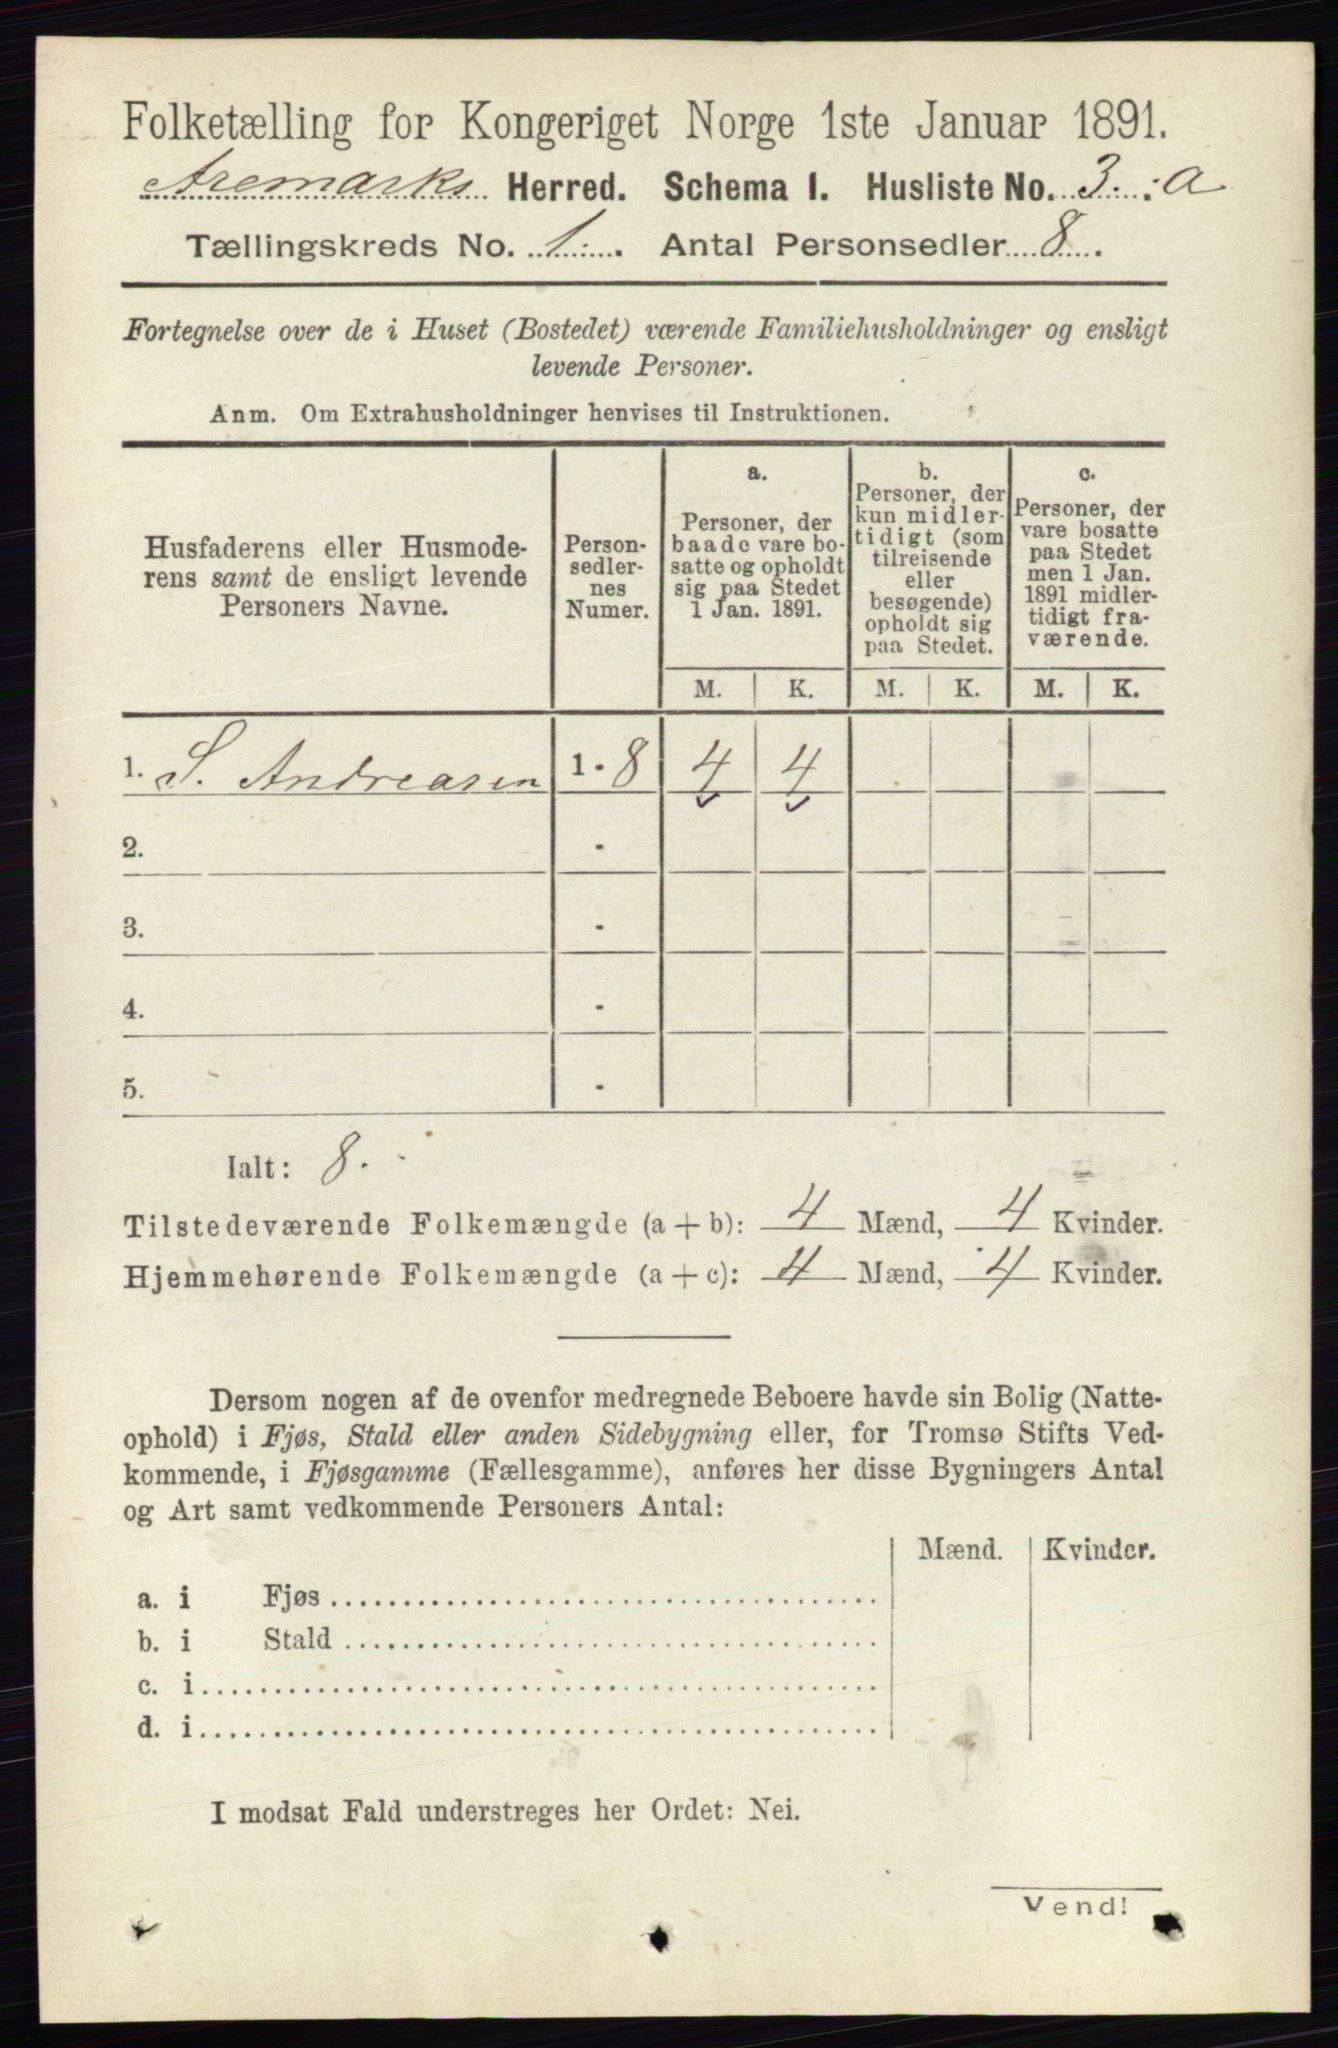 Folketælling for Kongeriget Norge 1ste Januar 1891.
Aremarks Herred. Schema I. Husliste No. 3. : a
Tællingskreds No. 1. Antal Personsedler 8.
Fortegnelse over de i Huset (Bostedet) værende Familiehusholdninger og ensligt
levende Personer.
Anm. Om Extrahusholdninger henvises til Instruktionen.
Husfaderens eller Husmode-
rens samt de ensligt levende
Personers Navne.
Person-
sedler-
nes
Numer.
a.
Personer, der
baade vare bo-
satte og opholdt
sig paa Stedet
1 Jan. 1891.
b.
Personer, der
kun midler-
tidigt (som
tilreisende
eller
besøgende)
opholdt sig
paa Stedet.
c.
Personer, der
vare bosatte
paa Stedet
men 1 Jan.
1891 midler-
tidigt fra-
værende.
M. K. M. K. M. K.
1. S. Andreasen 1 - 8 4 4
2. -
3. -
4. -
5. -
Ialt: 8.
Tilstedeværende Folkemængde (a + b): 4 Mænd, 4 Kvinder.
Hjemmehørende Folkemængde (a + c): 4 Mænd, 4 Kvinder.
Dersom nogen af de ovenfor medregnede Beboere havde sin Bolig (Natte-
ophold) i Fjøs, Stald eller anden Sidebygning eller, for Tromsø Stifts Ved-
kommende, i Fjøsgamme (Fællesgamme), anføres her disse Bygningers Antal
og Art samt vedkommende Personers Antal:
Mænd. Kvinder.
a. i Fjøs
b. i Stald
c. i
d. i
I modsat Fald understreges her Ordet: Nei.
Vend!